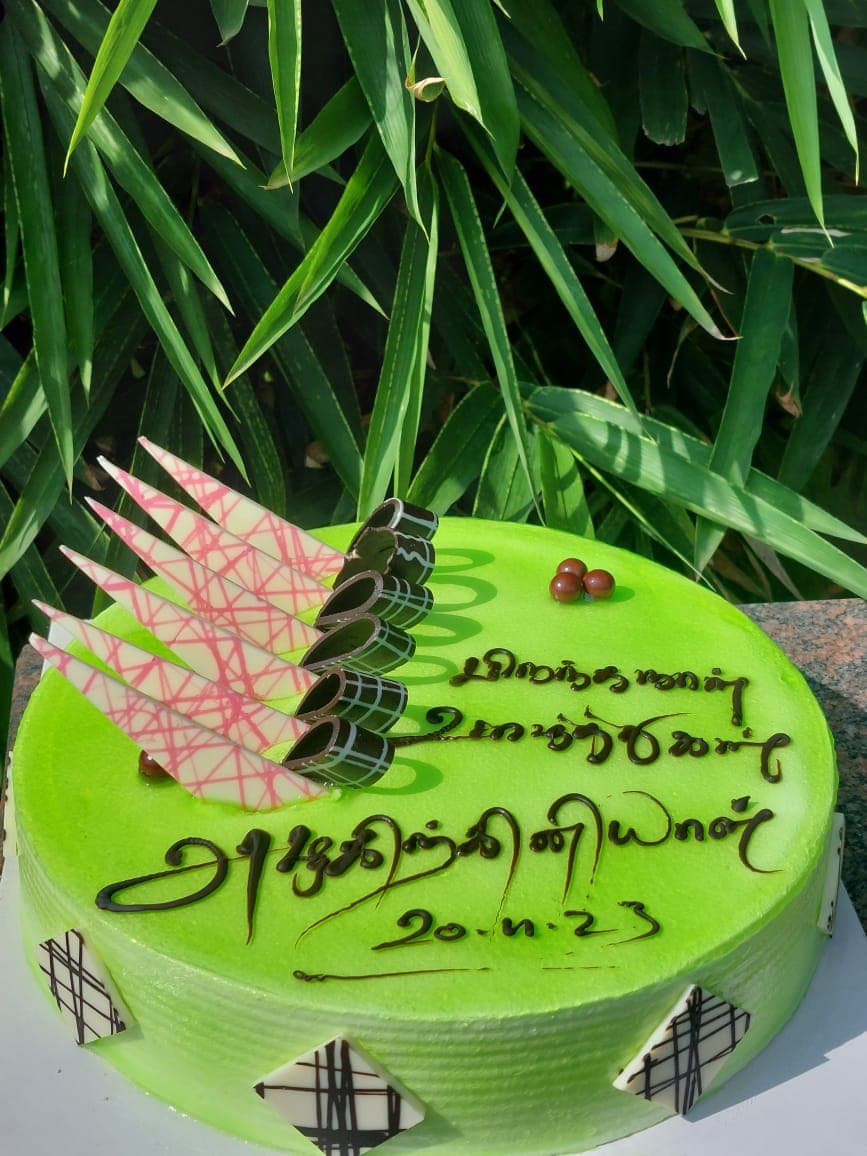 பிறந்தநாள்
உவாழ்த்துகள்
அழகிற்கினியாள்
20.11.23